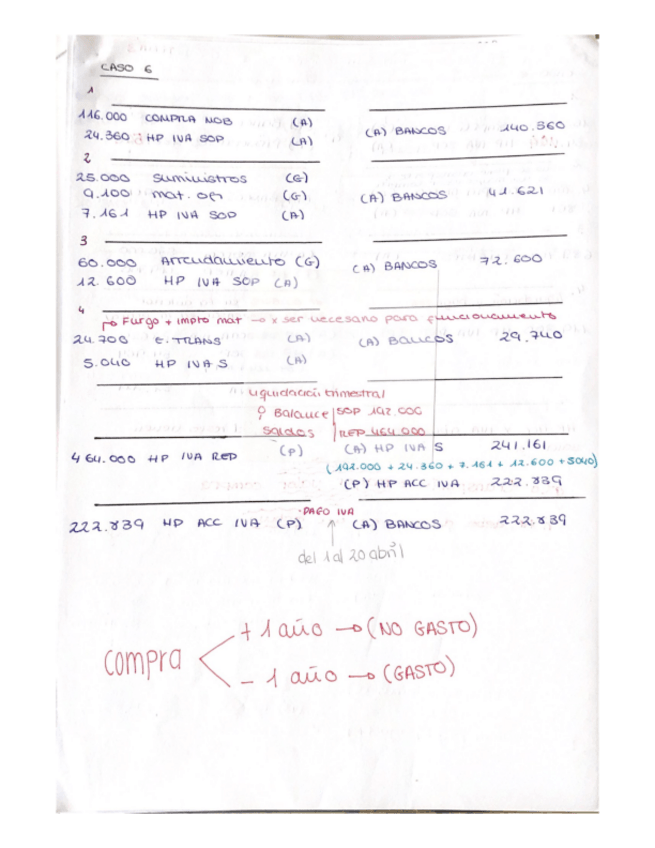 CASO 6
1
116.000 COMPRA MOB (A)
24.360 HP IVA SOP (A) (A) BANCOS 140.360
2
25.000 suministros (G)
9.100 mat. ofi (G) (A) BANCOS 41.621
7.161 HP IVA SOP (A)
3
60.000 Arrendamiento (G) (A) BANCOS 72.600
12.600 HP IVA SOP (A)
4
Furgo + impto mat → x ser necesario para funcionamiento
24.700 E. TRANS (A) (A) BANCOS 29.740
5.040 HP IVA S (A)
Liquidación trimestral
Balance SOP 192.000
saldos REP 464.000
464.000 HP IVA REP (P) (A) HP IVA S 241.161
(192.000 + 24.360 + 7.161 + 12.600 + 5040)
(P) HP ACC IVA 222.839
PAGO IVA
222.839 HP ACC IVA (P) (A) BANCOS 222.839
del 1 al 20 abril
+ 1 año → (NO GASTO)
compra
- 1 año → (GASTO)